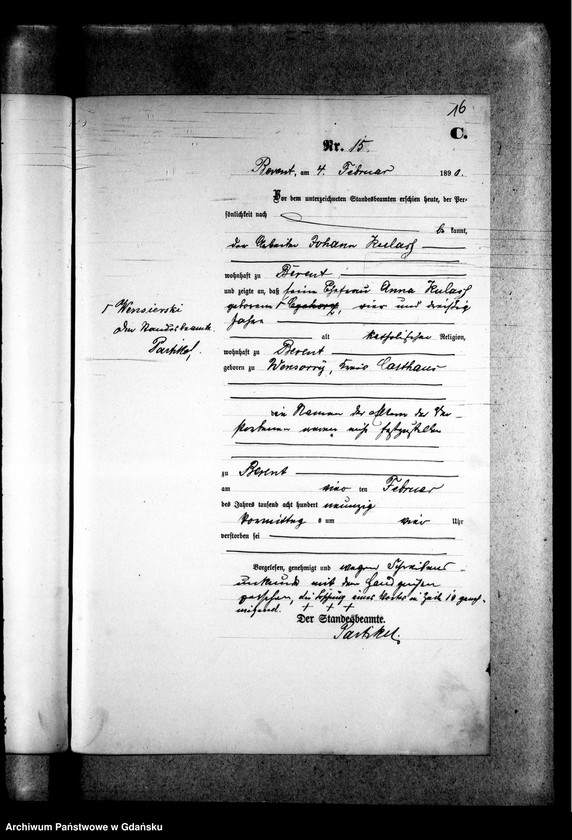 16
C.
Nr. 15.
Berent, am 4. Februar 1890.
Vor dem unterzeichneten Standesbeamten erschien heute, der Per-
sönlichkeit nach
be kannt,
der Arbeiter Johann Kulas
wohnhaft zu Berent
und zeigte an, daß seine Ehefrau Anna Kulas
geborene vier und dreißig
Jahre
alt katholischer Religion,
wohnhaft zu Berent
geboren zu Kreis Carthaus
die Namen der Eltern der Ver-
storbenen waren nicht festzustellen
zu Berent
am vier ten Februar
des Jahres tausend acht hundert neunzig
Vormittag s um vier Uhr
verstorben sei
Vorgelesen, genehmigt und wegen Schreibens-
unkunde mit dem Handzeichen
versehen, die Löschung eines Worts in Zeile 10 geneh-
migend. + + +
Der Standesbeamte.
Partikel.
r Wensierski
Der Standesbeamte.
Partikel.
Archiwum Państwowe w Gdańsku